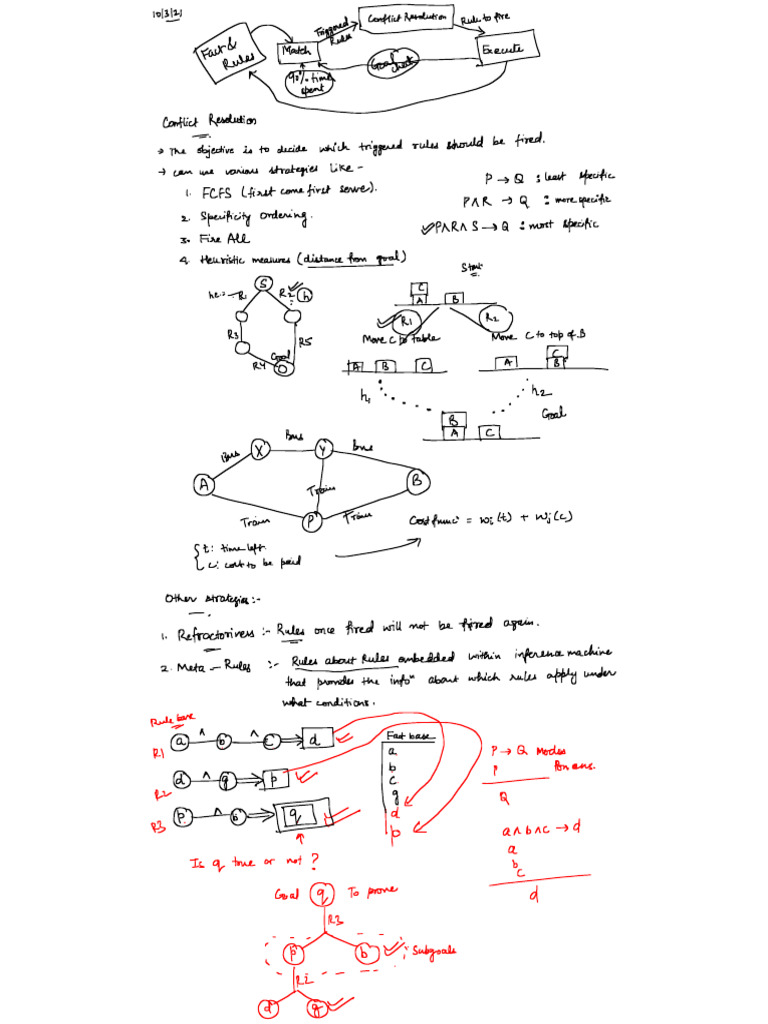 10/3/21
Fact & Rules
Match
Triggered Rules
Conflict Resolution
Rule to fire
Execute
Goal check
90% time spent
Conflict Resolution
→ The objective is to decide which triggered rules should be fired.
→ can use various strategies like -
1. FCFS (first come first serve).
2. Specificity Ordering.
3. Fire All
4. Heuristic measures (distance from goal)
P → Q : least specific
P∧R → Q : more specific
✓ P∧R∧S → Q : most specific
S
R2
h
R3
R5
R4
Goal
Start
C
A
B
R1
R2
Move C to table
Move C to top of B
A B C
A
C
B
h1
h2
Goal
B
A
C
Bus
X
Bus
Y
Bus
A
B
Train
Train
P
Train
t: time left
c: cost to be paid
Cost func: = Wi(t) + Wj(c)
Other strategies:-
1. Refractoriness :- Rules once fired will not be fired again.
2. Meta - Rules :- Rules about Rules embedded within inference machine
that provides the infoⁿ about which rules apply under
what conditions.
Rule base
R1 a ∧ b ∧ c ⇒ d
R2 d ∧ g ⇒ p
R3 p ∧ b ⇒ q
Is q true or not?
Fact base
a
b
c
g
d
p
P → Q Modes
P Ponens.
Q
a∧b∧c → d
a
b
c
d
Goal q To prove
R3
p b Subgoals
R2
d g